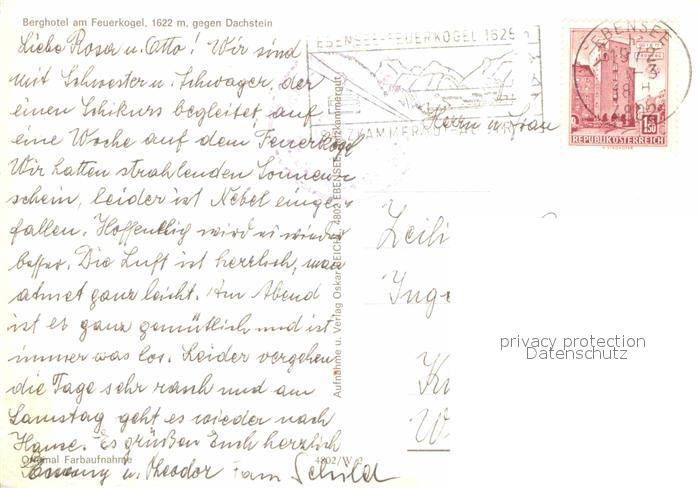 Berghotel am Feuerkogel, 1622 m, gegen Dachstein
Liebe Rosa u. Otto! Wir sind
mit Schwester u. Schwager, der
einen Schikurs begleitet, auf
eine Woche auf dem Feuerkogel
Wir hatten strahlenden Sonnen-
schein, leider ist Nebel einge-
fallen. Hoffentlich wird es wieder
besser. Die Luft ist herrlich, man
atmet ganz leicht. Am Abend
ist es ganz gemütlich und ist
immer was los. Leider vergehen
die Tage sehr rasch und am
Samstag geht es wieder nach
Hause. Es grüßen Euch herzlich
u. Theodor Fam Schild
Original Farbaufnahme
4802/W 2
Aufnahme u. Verlag Oskar REICH, 4802 EBENSEE, Salzkammergut
EBENSEE-FEUERKOGEL 1625
SALZKAMMERGUT
EBENSEE
4802
1.50
REPUBLIK ÖSTERREICH
Herrn u. Frau
Zeili
Inge
W
privacy protection
Datenschutz